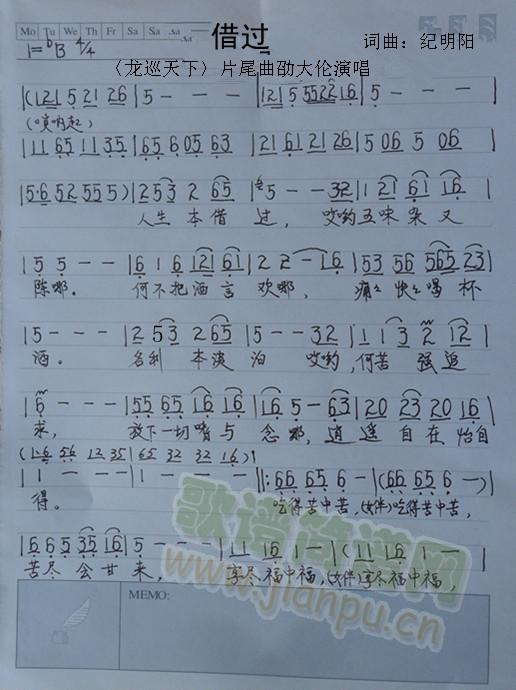 Mo Tu We Th Fr Sa Su
借过
词曲：纪明阳
1=bB 4/4
〈龙巡天下〉片尾曲劭大伦演唱
|(121 5 21 26 | 5 - - - | 121 5 5522 16 | 5 - - - |
(唢呐起)
| 11 65 11 35 | 65 6 05 63 | 21 61 21 26 | 5 06 5 06 |
| 5·6 52 55 5) | 2 53 2 65 | 5 - - 32 | 1 21 61 16 |
人生本借过，哎哟五味杂又
| 5 5 - - | 6 1 6 121 61 | 2 2 - 16 | 53 56 565 23 |
陈哪。何不把酒言欢哪，痛々快々喝杯
| 5 - - - | 2 53 2 65 | 5 - - 32 | 1 1 3 2 12 |
酒。名利本淡泊哎哟，何苦强迫
| 6 - - - | 55 65 16 16 | 16 5 - 63 | 20 23 20 16 |
求，放下一切嗔与念哪，逍遥自在怡自
(1·6 56 12 35 | 65 32 32 16)
| 1 - - - | 1 - - - ||: 66 65 6 - | (66 65 6 -) |
得。吃得苦中苦，(女伴)吃得苦中苦，
| 6 6 5 35 16 | 5 - - - | 11 16 1 - | (11 16 1 - |
苦尽会甘来，享尽福中福，(女伴)享尽福中福，
歌谱简谱网
www.jianpu.cn
MEMO: